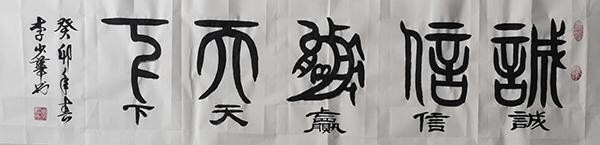 誠信贏天下
誠信贏天下
癸卯年春
李少華